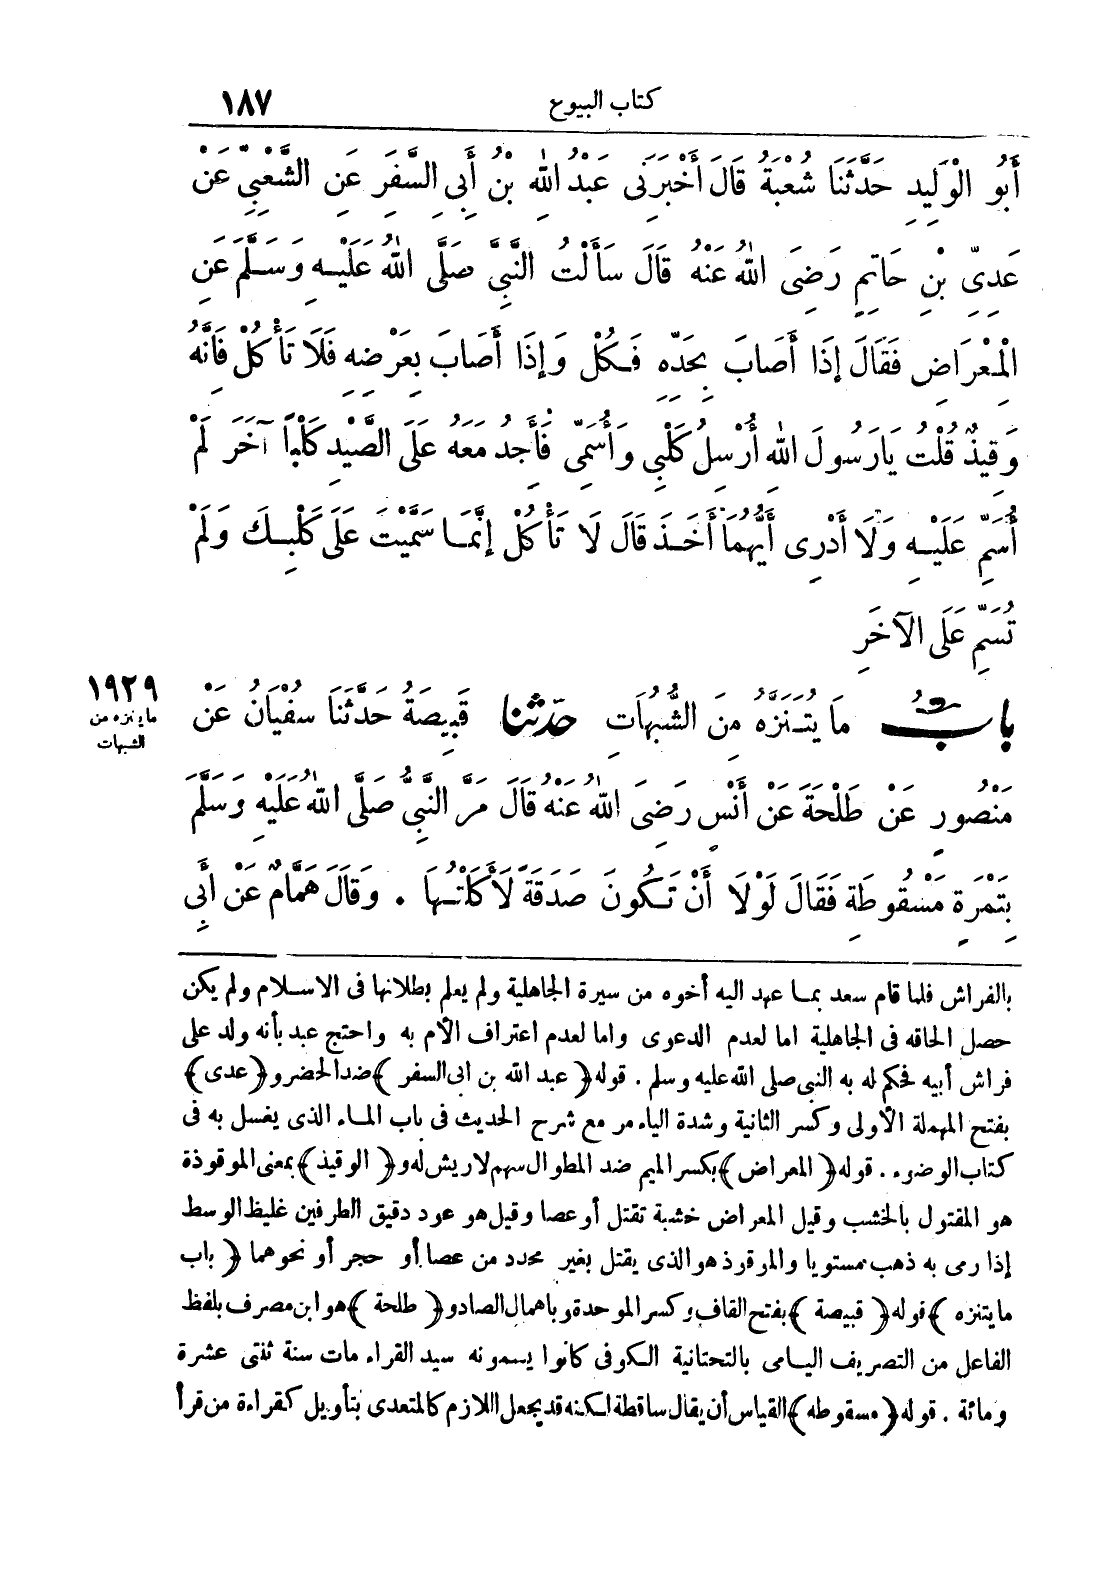 كتاب البيوع ١٨٧
أَبُو الْوَلِيدِ حَدَّثَنَا شُعْبَةُ قَالَ أَخْبَرَنِى عَبْدُ اللهِ بْنُ أَبِى السَّفَرِ عَنِ الشَّعْبِىِّ عَنْ
عَدِىِّ بْنِ حَاتِمٍ رَضِىَ اللهُ عَنْهُ قَالَ سَأَلْتُ النَّبِىَّ صَلَّى اللهُ عَلَيْهِ وَسَلَّمَ عَنِ
الْمِعْرَاضِ فَقَالَ إِذَا أَصَابَ بِحَدِّهِ فَكُلْ وَإِذَا أَصَابَ بِعَرْضِهِ فَلَا تَأْكُلْ فَانَّهُ
وَقِيذٌ قُلْتُ يَا رَسُولَ اللهِ أُرْسِلُ كَلْبِى وَأُسَمِّى فَأَجِدُ مَعَهُ عَلَى الصَّيْدِ كَلْبًا آخَرَ لَمْ
أُسَمِّ عَلَيْهِ وَلَا أَدْرِى أَيُّهُمَا أَخَذَ قَالَ لَا تَأْكُلْ إِنَّمَا سَمَّيْتَ عَلَى كَلْبِكَ وَلَمْ
تُسَمِّ عَلَى الآخَرِ
١٩٢٩
ما يتنزه من
الشبهات
بابُ مَا يُتَنَزَّهُ مِنَ الشُّبُهَاتِ حدّثنا قَبِيصَةُ حَدَّثَنَا سُفْيَانُ عَنْ
مَنْصُورٍ عَنْ طَلْحَةَ عَنْ أَنَسٍ رَضِىَ اللهُ عَنْهُ قَالَ مَرَّ النَّبِىُّ صَلَّى اللهُ عَلَيْهِ وَسَلَّمَ
بِتَمْرَةٍ مَسْقُوطَةٍ فَقَالَ لَوْلَا أَنْ تَكُونَ صَدَقَةً لَأَكَلْتُهَا . وَقَالَ هَمَّامٌ عَنْ أَبِى
بالفراش فلما قام سعد بما عهد اليه أخوه من سيرة الجاهلية ولم يعلم بطلانها فى الاسلام ولم يكن
حصل الحاقه فى الجاهلية اما لعدم الدعوى واما لعدم اعتراف الأم به واحتج عبد بأنه ولد على
فراش أبيه فحكم له به النبى صلى الله عليه وسلم . قوله ﴿ عبد الله بن ابى السفر ﴾ ضد الحضر و ﴿ عدى ﴾
بفتح المهملة الأولى وكسر الثانية وشدة الياء مر مع شرح الحديث فى باب الماء الذى يغسل به فى
كتاب الوضوء . قوله ﴿ المعراض ﴾ بكسر الميم ضد المطوال سهم لا ريش له و ﴿ الوقيذ ﴾ بمعنى الموقوذة
هو المقتول بالخشب وقيل المعراض خشبة تقتل أو عصا وقيل هو عود دقيق الطرفين غليظ الوسط
إذا رمى به ذهب مستويا والموقوذ هو الذى يقتل بغير محدد من عصا أو حجر أو نحوهما ﴿ باب
ما يتنزه ﴾ قوله ﴿ قبيصة ﴾ بفتح القاف وكسر الموحدة وباهمال الصاد و ﴿ طلحة ﴾ هو ابن مصرف بلفظ
الفاعل من التصريف اليامى بالتحتانية الكوفى كانوا يسمونه سيد القراء مات سنة ثنتى عشرة
ومائة . قوله ﴿ مسقوطه ﴾ القياس أن يقال ساقطة لكنه قد يجعل اللازم كالمتعدى بتأويل كقراءة من قرأ